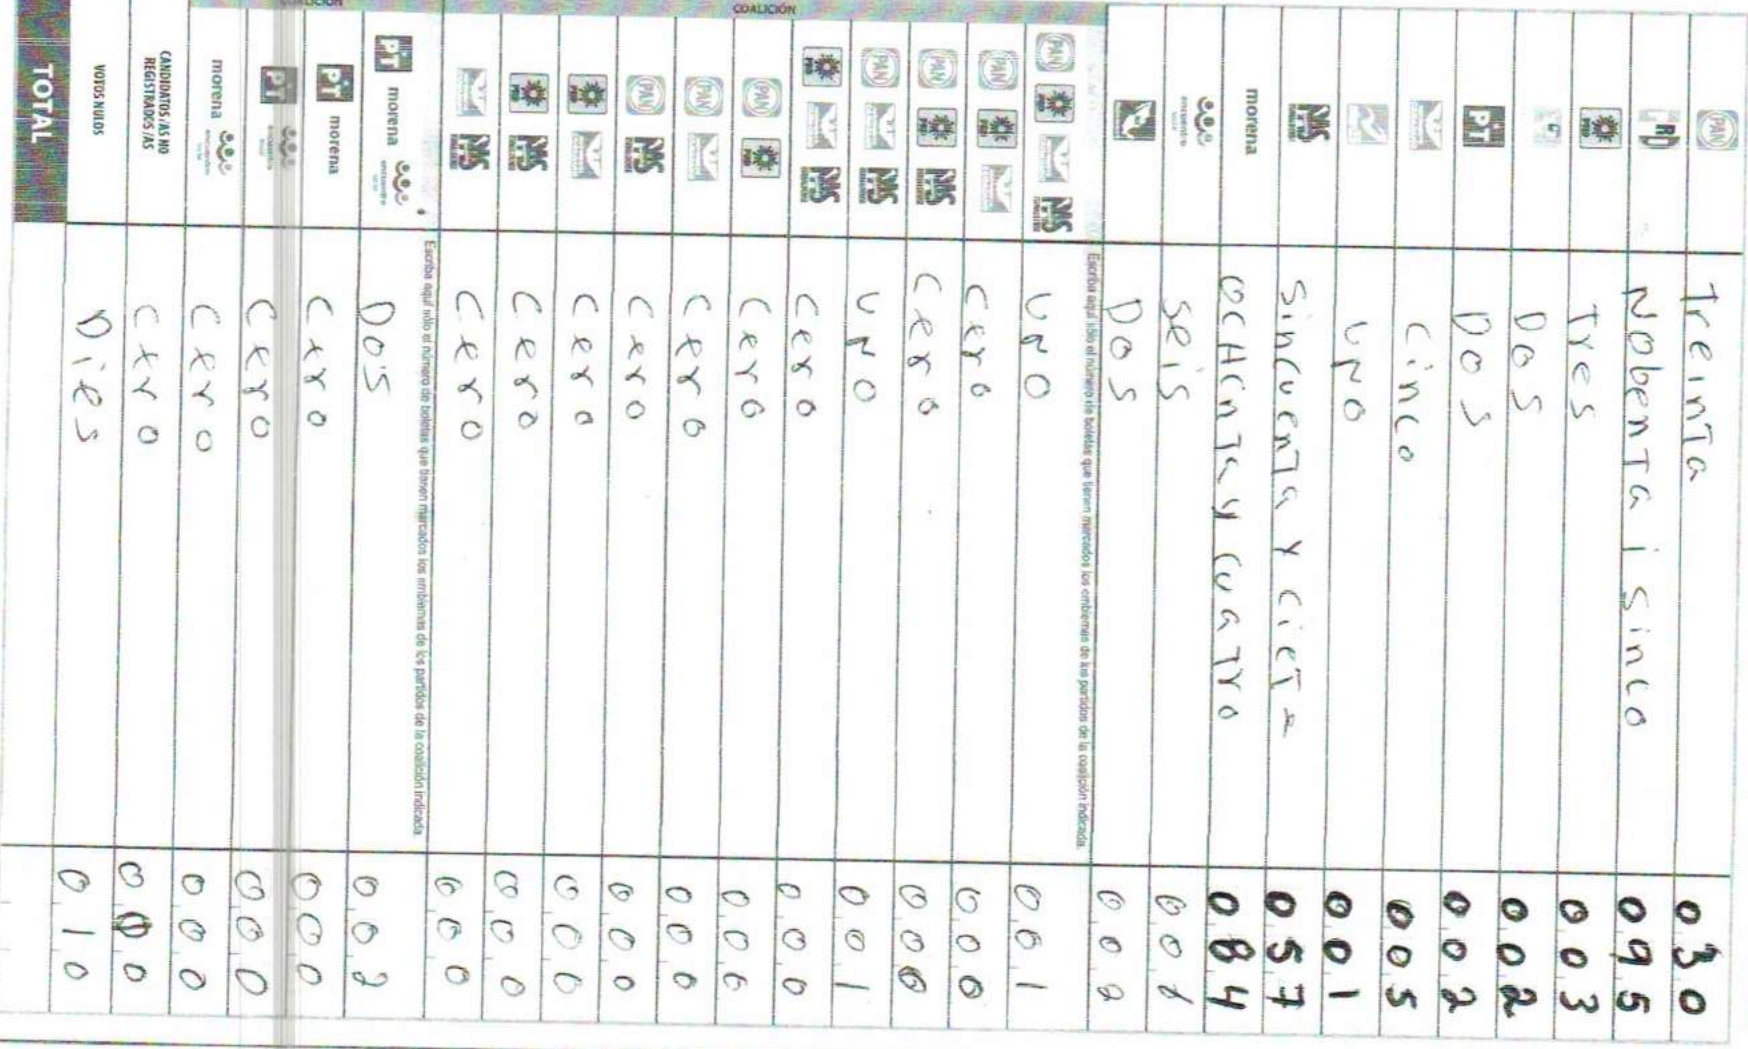 PAN Treinta 030
PRD Nobenta i sinco 095
PRD Tres 003
Dos 002
PT Dos 002
Cinco 005
UNO 001
PAIS Sincuenta y ciete 057
morena OCHENTA y cuatro 084
encuentro social Seis
Dos 002
COALICIÓN
Escriba aquí sólo el número de boletas que tienen marcados los emblemas de los partidos de la coalición indicada.
PAN UNO 001
PAN Cero 000
PAN Cero 000
PAN UNO 001
Cero 000
PAN Cero 000
PAN Cero 000
PAN Cero 000
Cero 000
Cero 000
Cero 000
COALICIÓN
Escriba aquí sólo el número de boletas que tienen marcados los emblemas de los partidos de la coalición indicada.
PT morena encuentro social Dos 002
PT morena Cero 000
PT encuentro social Cero 000
morena encuentro social Cero 000
CANDIDATOS/AS NO REGISTRADOS/AS Cero 000
VOTOS NULOS Dies 010
TOTAL